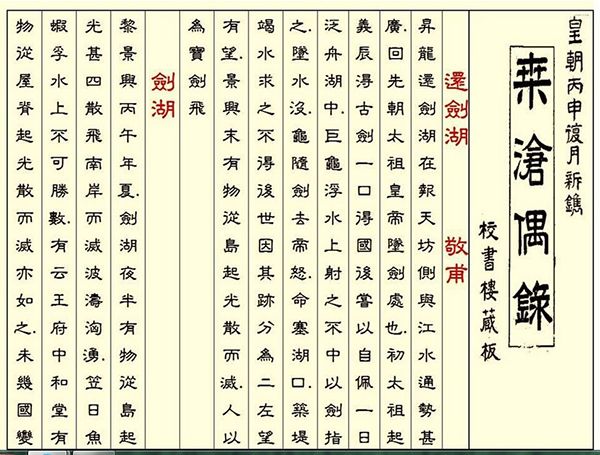 皇朝丙申復月新鐫
桒滄偶錄
校書樓蔵板
還劍湖 敬甫
昇龍還劍湖在報天坊側與江水通勢甚
廣.回先朝太祖皇帝墜劍處也.初太祖起
義辰淂古劍一口得國後嘗以自佩一日
泛舟湖中.巨龜浮水上射之不中以劍指
之.墜水沒.龜隨劍去帝怒.命塞湖口.築堤
竭水求之不得後世因其跡分為二左望
有望.景興末有物從島起光散而滅.人以
為寶劍飛
劍湖
黎景興丙午年夏.劍湖夜半有物從島起
光甚四散飛南岸而滅波濤洶湧.笠日魚
蝦孚水上不可勝數.有云王府中和堂有
物從屋脊起光散而滅亦如之.未幾國變